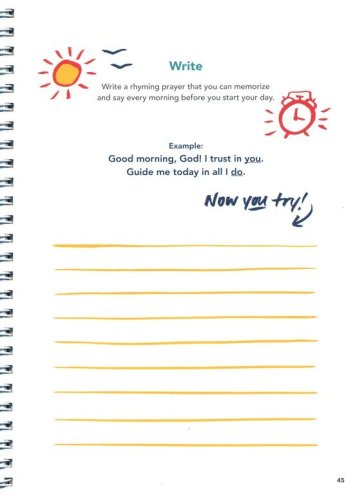 Write
Write a rhyming prayer that you can memorize
and say every morning before you start your day.
Example:
Good morning, God! I trust in you.
Guide me today in all I do.
Now you try!
45